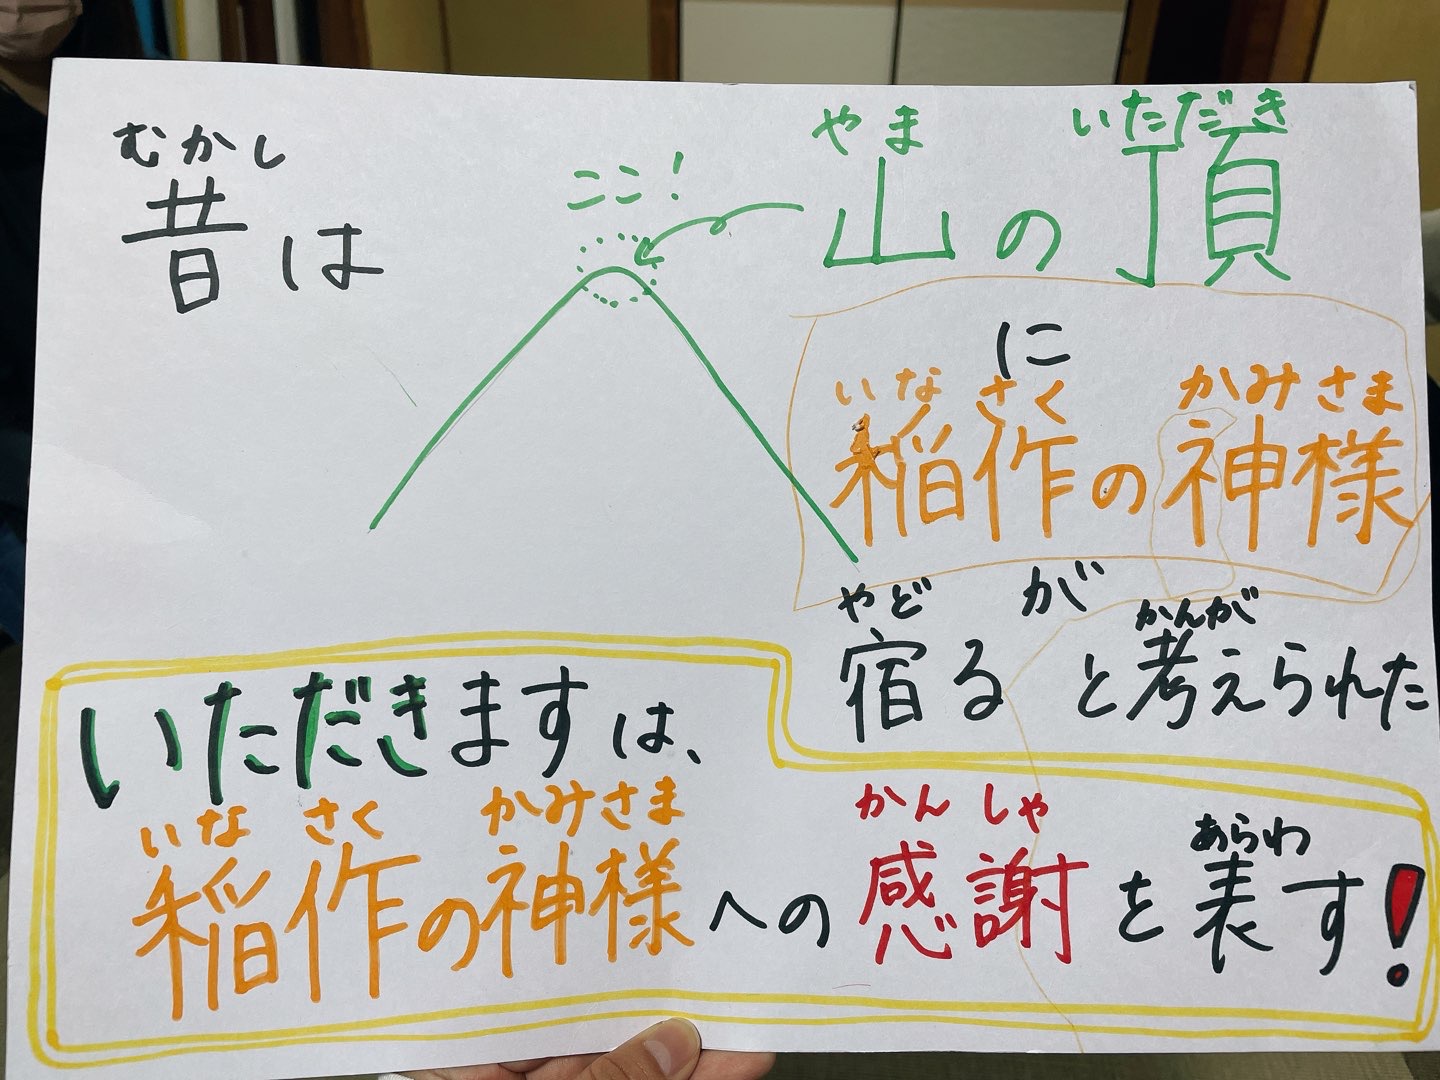 むかし
昔は
ここ!
やま いただき
山の頂
に
いなさく かみさま
稲作の神様
が
やど かんが
宿ると考えられた
いただきますは、
いなさく かみさま かんしゃ あらわ
稲作の神様への感謝を表す!